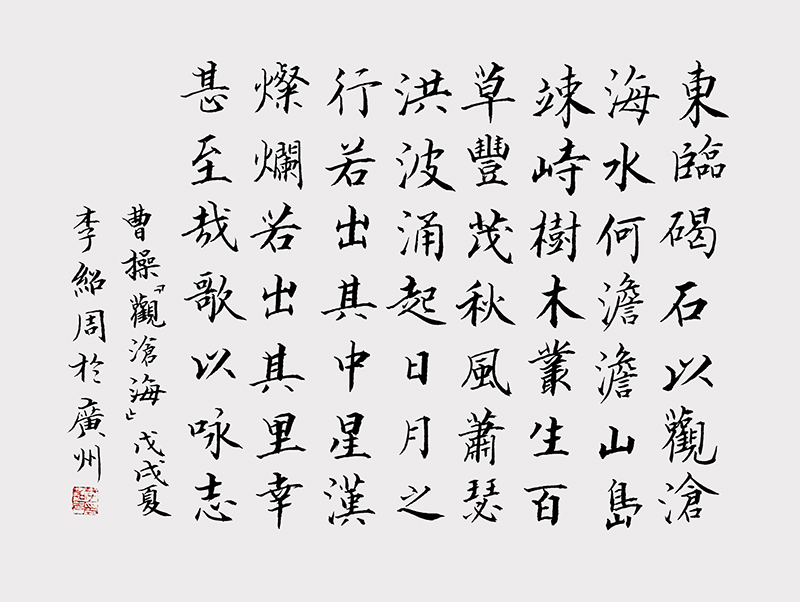 東臨碣石以觀滄
海水何澹澹山島
竦峙樹木叢生百
草豐茂秋風蕭瑟
洪波涌起日月之
行若出其中星漢
燦爛若出其里幸
甚至哉歌以咏志
曹操『觀滄海』戊戌夏
李紹周於廣州